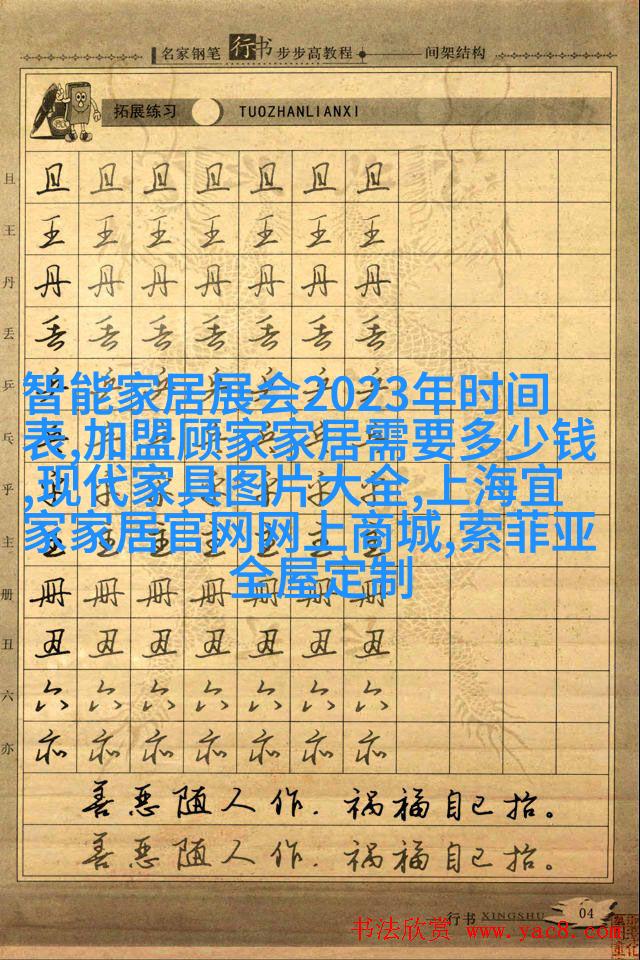 名家钢笔行书步步高教程 间架结构
拓展练习 TUOZHANLIANXI
且 且 且 且 且 且 且 且
王 王 王 王 王 王 王 王
丹 丹 丹 丹 丹 丹 丹 丹
丢 丢 丢 丢 丢 丢 丢 丢
乒
智能家居展会2023年时间
表,加盟顾家家居需要多少钱
乓
,现代家具图片大全,上海宜
乎
家家居官网网上商城,索菲亚
主
全屋定制
册 册 册 册 册 册 册 册
丑 丑 丑 丑 丑 丑 丑 丑
六 六 六 六 六 六 六 六
亦 亦 亦 亦 亦 亦 亦 亦
善恶随人作.祸福自己招。
善恶随人作.祸福自己招。
行书 XINGSHU 04
书法欣赏 www.yac8.com